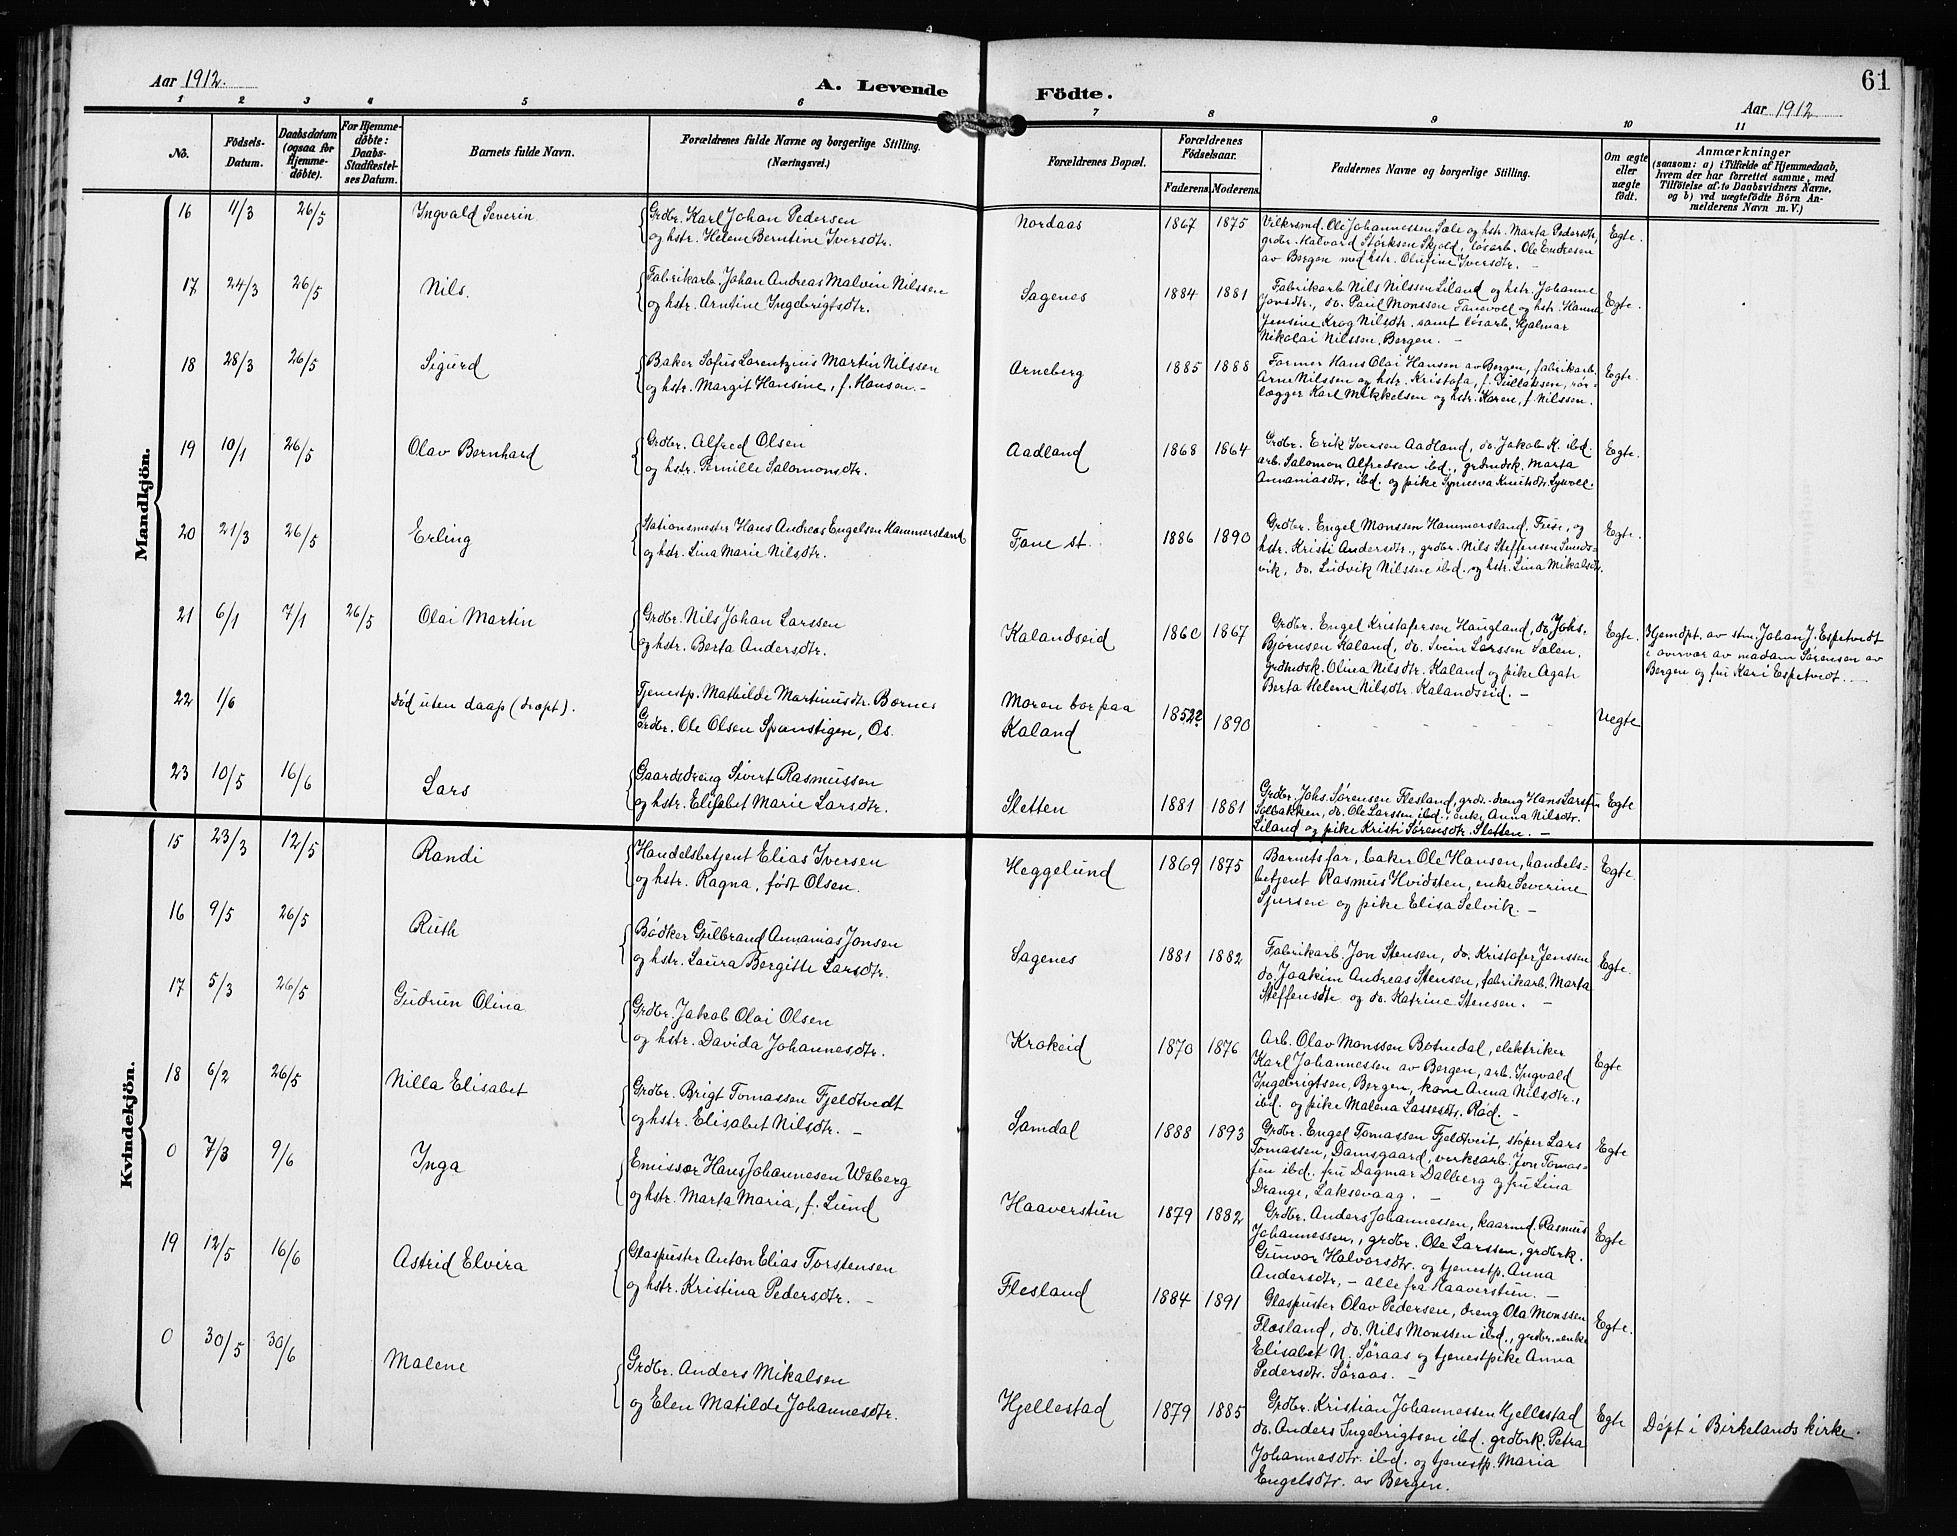 Aar 1912.
A. Levende Födte.
61
Aar 1912
1 2 3 4 5 6 7 8 9 10 11
No. Födsels-Datum. Daabsdatum (ogsaa for Hjemmedöbte). For Hjemmedöbte: Daabs-Stadfæstelses Datum. Barnets fulde Navn. Forældrenes fulde Navne og borgerlige Stilling. (Næringsvei.) Forældrenes Bopæl. Forældrenes Födselsaar. Faderens. Moderens. Faddernes Navne og borgerlige Stilling. Om ægte eller uægte födt. Anmærkninger (saasom: a) i Tilfælde af Hjemmedaab, hvem der har forrettet samme, med Tilföielse af to Daabsvidners Navne, og b) ved uegtefödte Börn Anmelderens Navn m. V.)
Mandkjön.
16 11/3 26/5 Ingvald Severin
Grdbr. Karl Johan Pedersen
og hstr. Helene Berntine Iversdtr.
Nordaas 1867 1875
Vilkrsmd. Ole Johannessen Sæle og hstr. Marta Pedersdtr,
grdbr. Halvard Störksen Skjold, lösarb. Ole Endresen
av Bergen med hstr. Olufine Iversdtr. –
Egte.
17 24/3 26/5 Nils.
Fabrikarb. Johan Andreas Malvin Nilssen
og hstr. Arntine Ingebrigtsdtr.
Sagenes 1884 1881
Fabrikarb. Nils Nilssen Liland og hstr. Johanne
Jonsdtr., do. Paul Monssen Fanevold og hstr. Hanna
Jensine Krog Nilsdtr. samt lösarb. Hjalmar
Nikolai Nilssen, Bergen. –
Egte.
18 28/3 26/5 Sigurd
Baker Sofus Lorentzius Martin Nilssen
og hstr. Margit Hansine, f. Hansen. –
Arneberg 1885 1888
Former Hans Olai Hansen av Bergen, fabrikarb.
Arne Nilssen og hstr. Kristofa, f. Gullaksen, rör-
lægger Karl Mikkelsen og hstr. Karen, f. Nilssen.
Egte.
19 10/1 26/5 Olav Bernhard
Grdbr. Alfred Olsen
og hstr. Pernille Salomonsdtr.
Aadland 1868 1864
Grdbr. Erik Iversen Aadland, do. Jakob K. ibd.
arb. Salomon Alfredsen ibd., grdmdsk. Marta
Annaniasdtr. ibd. og pike Synneva Knutsdtr.
Egte.
20 21/3 26/5 Erling
Stationsmester Hans Andreas Engelsen Hammersland
og hstr. Lina Marie Nilsdtr.
Fane st. 1886 1890
Grdbr. Engel Monssen Hammersland, Fuse, og
hstr. Kristi Andersdtr., grdbr. Nils Steffensen Smeds-
vik, do. Ludvik Nilssen ibd. og hstr. Lina Mikalsdtr.
Egte.
21 6/1 7/1 26/5 Olai Martin
Grdbr. Nils Johan Larssen
og hstr. Berta Andersdtr.
Kalandseid 1860 1867
Grdbr. Engel Kristofersen Haugland, do. Johs.
Björnsen Kaland, do. Svein Larssen Sælen,
grdmdsk. Olina Nilsdtr. Kaland og pike Agate
Berta Helene Nilsdtr. Kalandseid. –
Egte.
Hjemdpt. av stm. Johan J. Espetvedt
i overvær av madam Sörensen av
Bergen og fru Kari Espetvedt. –
22 1/6 Död uten daap (dræpt).
Tjenestp. Mathilde Martinusdtr. Bornes
Grdbr. Ole Olsen Spanstigen, Os.
Moren bor paa
Kaland
1852? 1890
Uegte
23 10/5 16/6 Lars
Gaardsdreng Sivert Rasmussen
og hstr. Elisabet Marie Larsdtr.
Sletten 1881 1881
Grdbr. Johs. Sörensen Flesland, grdr. dreng Hans Larssen
Solbakken, do. Ole Larssen ibd., enke Anna Nilsdtr.
Liland og pike Kristi Sörensdtr. Sletten. –
Egte
Kvindekjön.
15 23/3 12/5 Randi
Handelsbetjent Elias Iversen
og hstr. Ragna, födt Olsen.
Heggelund 1869 1875
Barnets far, baker Ole Hansen, handels-
betjent Rasmus Hvidsten, enke Severine
Sjursen og pike Elisa Selvik. –
Egte.
16 9/5 26/5 Ruth
Bödker Gulbrand Annanias Jonsen
og hstr. Laura Bergitte Larsdtr.
Sagenes 1881 1882
Fabrikarb. Jon Stensen, do. Kristofer Jenssen
do. Joakim Andreas Stensen, fabrikarb. Marta
Steffensdtr og do. Katrine Stensen. –
Egte.
17 5/3 26/5 Gudrun Olina
Grdbr. Jakob Olai Olsen
og hstr. Davida Johannesdtr.
Krokeid 1870 1876
Arb. Olav Monssen Botnedal, elektriker
Karl Johannesen av Bergen, arb. Ingvald
Ingebrigtsen, Bergen, kone Anna Nilsdtr.,
ibd. og pike Malena Lassesdtr. Röd. –
Egte
18 6/2 26/5 Nilla Elisabet
Grdbr. Brigt Tomassen Fjeldtvedt
og hstr. Elisabet Nilsdtr. –
Samdal 1888 1893
Grdbr. Engel Tomassen Fjeldtveit, stöper Lars
Tomassen, Damsgaard, verksarb. Jon Tomas-
sen ibd. fru Dagmar Dalberg og fru Lina
Drange, Laksevaag. –
Egte
0 7/3 9/6 Inga
Emissær Hans Johannesen Waberg
og hstr. Marta Maria, f. Lund
Haaverstuen 1879 1882
Grdbr. Anders Johannessen, kaarmd. Rasmus
Johannessen, grdbr. Ole Larssen, grdbrk.
Gunvor Halvorsdtr. og tjenestp. Anna
Andersdtr, – alle fra Haaverstuen. –
Egte
19 12/5 16/6 Astrid Elvira
Glaspuster Anton Elias Torstensen
og hstr. Kristina Pedersdtr. –
Flesland 1884 1891
Glaspuster Olav Pedersen, dreng Ola Monssen
Flesland, do. Nils Monssen ibd., grdbr.-enke
Elisabet N. Söraas og tjenestpike Anna
Pedersdtr. Söraas. –
Egte.
0 30/5 30/6 Malene
Grdbr. Anders Mikalsen
og Elen Matilde Johannesdtr.
Hjellestad 1879 1885
Grdbr. Kristian Johannessen Hjellestad
do. Anders Ingebrigtsen ibd. grdbrk. Petra
Johannesdtr. ibd. og tjenestp. Maria
Engelsdtr. av Bergen.
Egte
Döpt i Birkelands kirke.